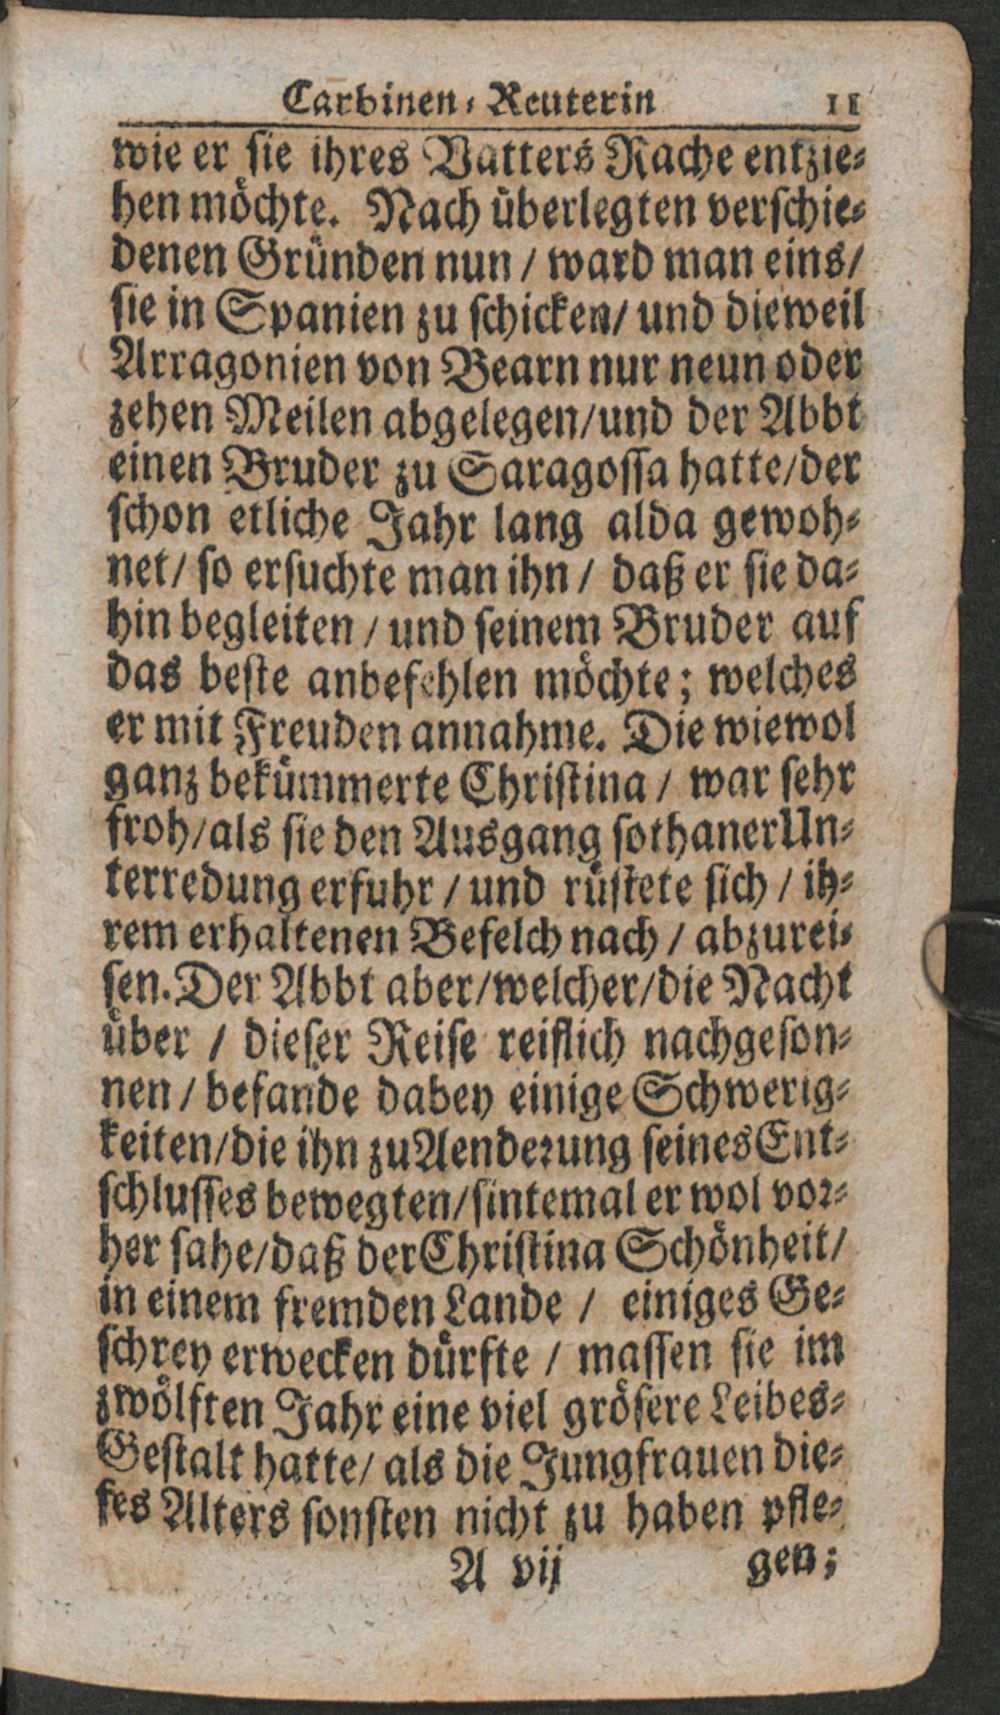 Carbinen-Reuterin 11
wie er sie ihres Vatters Rache entzie-
hen möchte. Nach überlegten verschie-
denen Gründen nun / ward man eins/
sie in Spanien zu schicken/ und dieweil
Arragonien von Bearn nur neun oder
zehen Meilen abgelegen/und der Abbt
einen Bruder zu Saragossa hatte/der
schon etliche Jahr lang alda gewoh-
net/ so ersuchte man ihn / daß er sie da-
hin begleiten / und seinem Bruder auf
das beste anbefehlen möchte; welches
er mit Freuden annahme. Die wiewol
ganz bekümmerte Christina / war sehr
froh/als sie den Ausgang sothaner Un-
terredung erfuhr / und rüstete sich / ih-
rem erhaltenen Befelch nach / abzurei-
sen. Der Abbt aber/welcher/die Nacht
über / dieser Reise reiflich nachgeson-
nen / befande dabey einige Schwerig-
keiten/die ihn zu Aenderung seines Ent-
schlusses bewegten/sintemal er wol vor-
her sahe/daß der Christina Schönheit/
in einem fremden Lande / einiges Ge-
schrey erwecken dürfte / massen sie im
zwölften Jahr eine viel grösere Leibes-
Gestalt hatte/ als die Jungfrauen die-
ses Alters sonsten nicht zu haben pfle-
A vij gen;